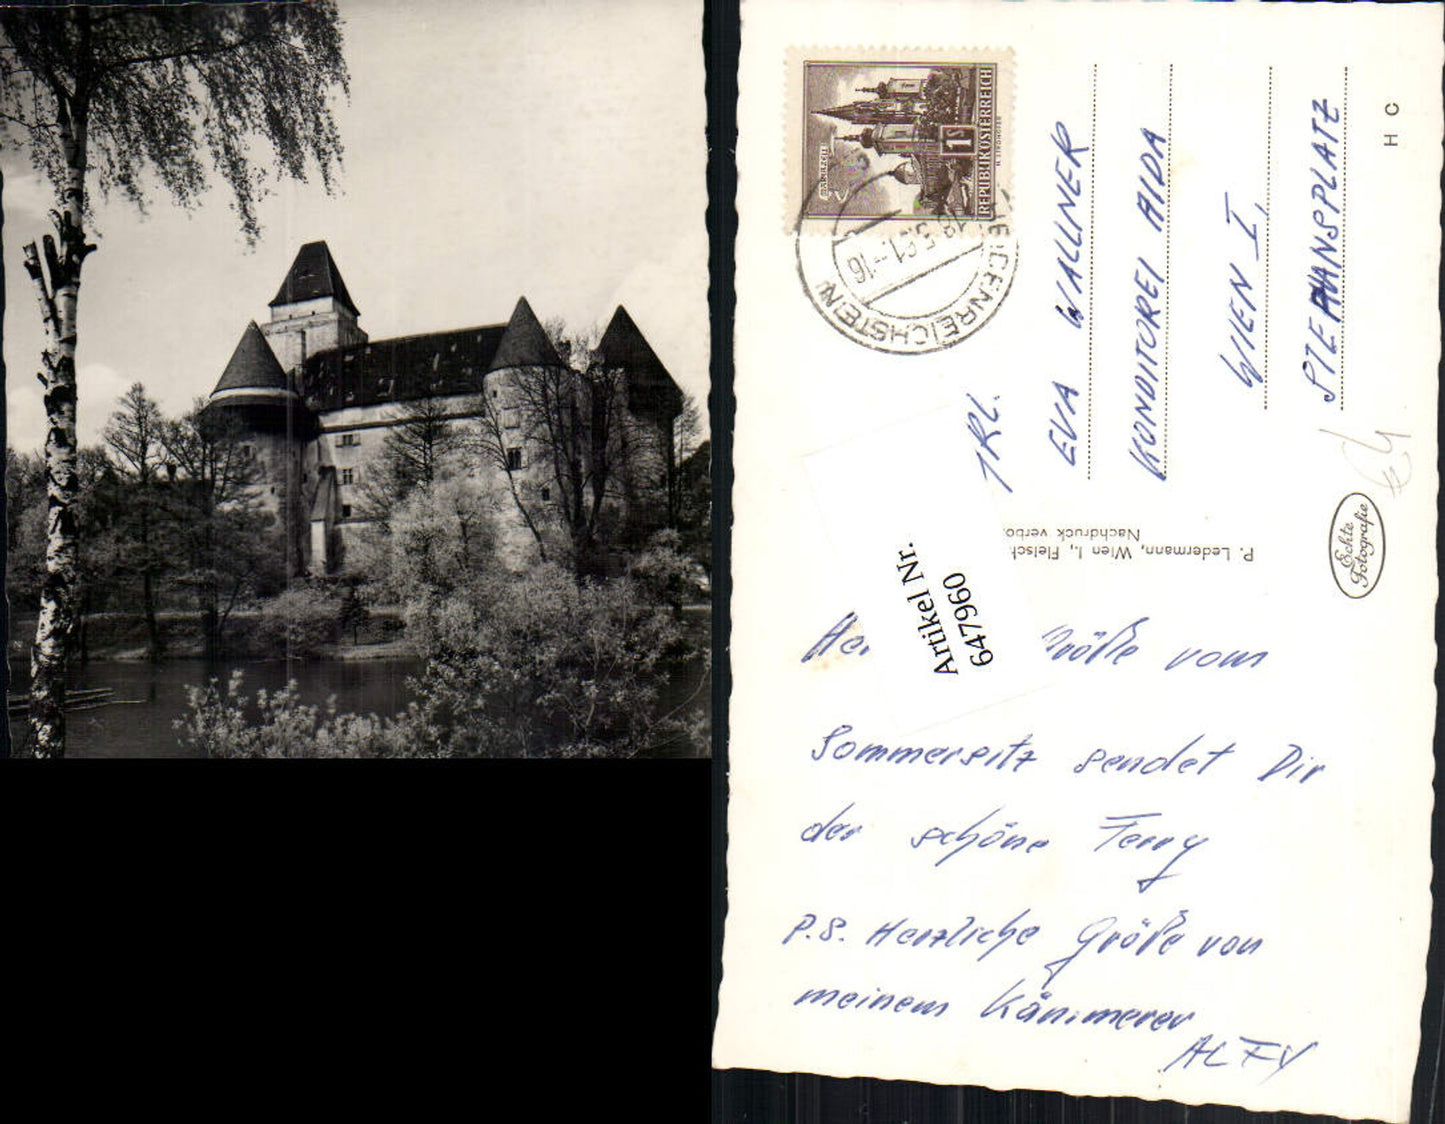 REPUBLIK ÖSTERREICH
1S
MARIAZELL
HEIDENREICHSTEIN
5.61.-16
FRL.
EVA WALLNER
KONDITOREI AIDA
WIEN I,
STEPHANSPLATZ
H C
P. Ledermann, Wien I., Fleisch
Nachdruck verbo
Echte
Fotografie
Artikel Nr.
647960
He Grüße vom
Sommersitz sendet Dir
der schöne Ferry
P.S. Herzliche Grüße von
meinem Kämmerer
ALFY